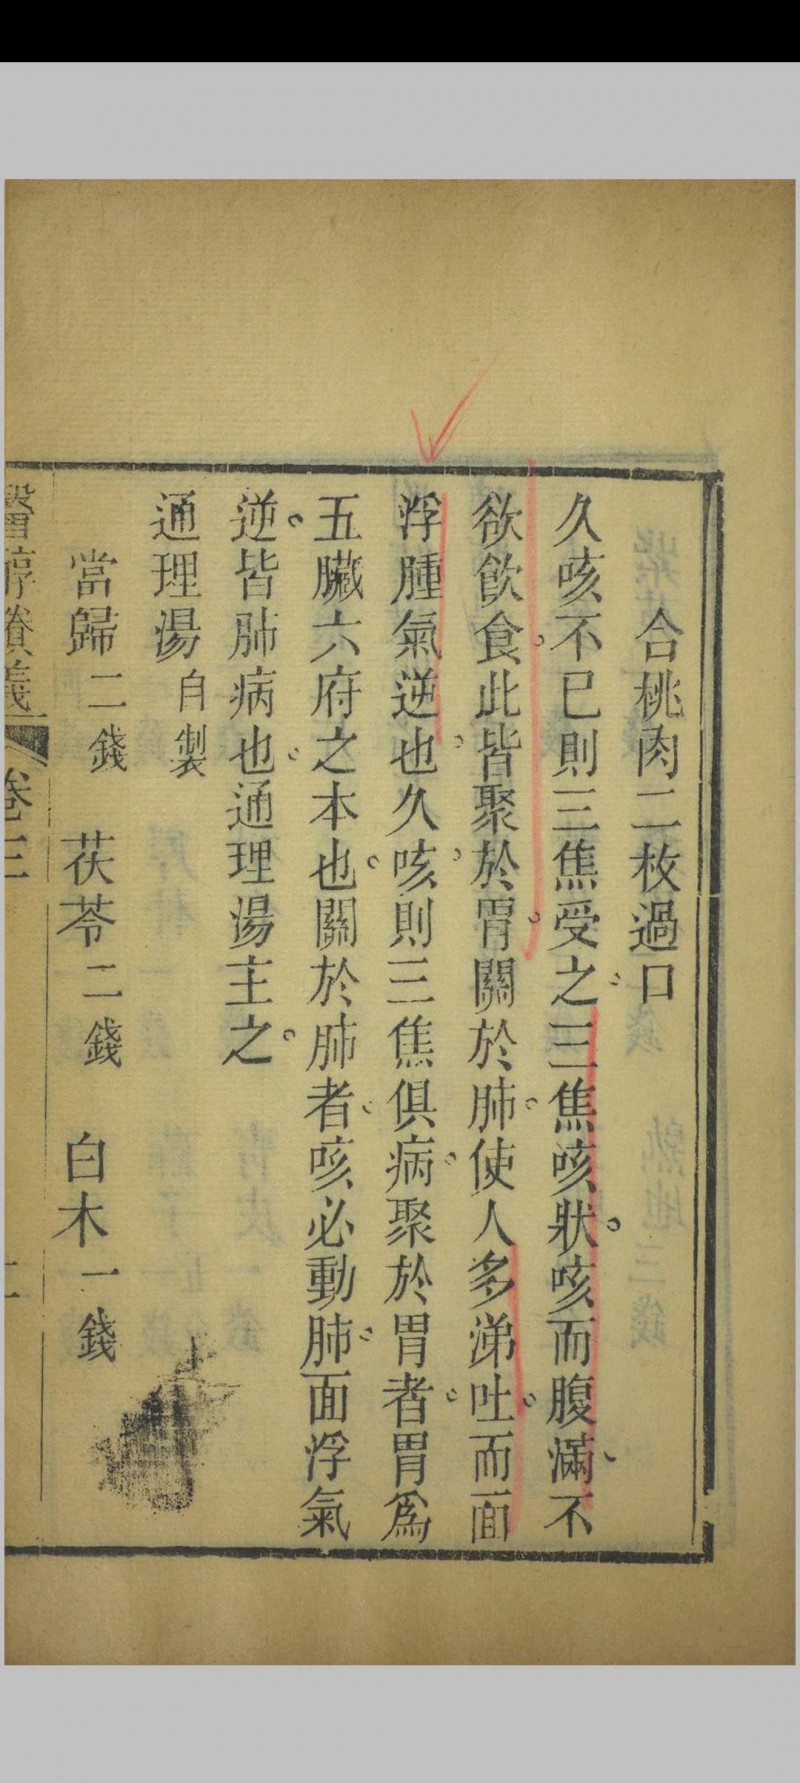 合桃肉二枚過口
久咳不已則三焦受之三焦咳狀咳而腹滿不
欲飲食此皆聚於胃關於肺使人多涕吐而面
浮腫氣逆也久咳則三焦俱病聚於胃者胃爲
五臟六府之本也關於肺者咳必動肺面浮氣
逆皆肺病也通理湯主之
通理湯自製
當歸二錢 茯苓二錢 白木一錢
醫醇賸義 卷三